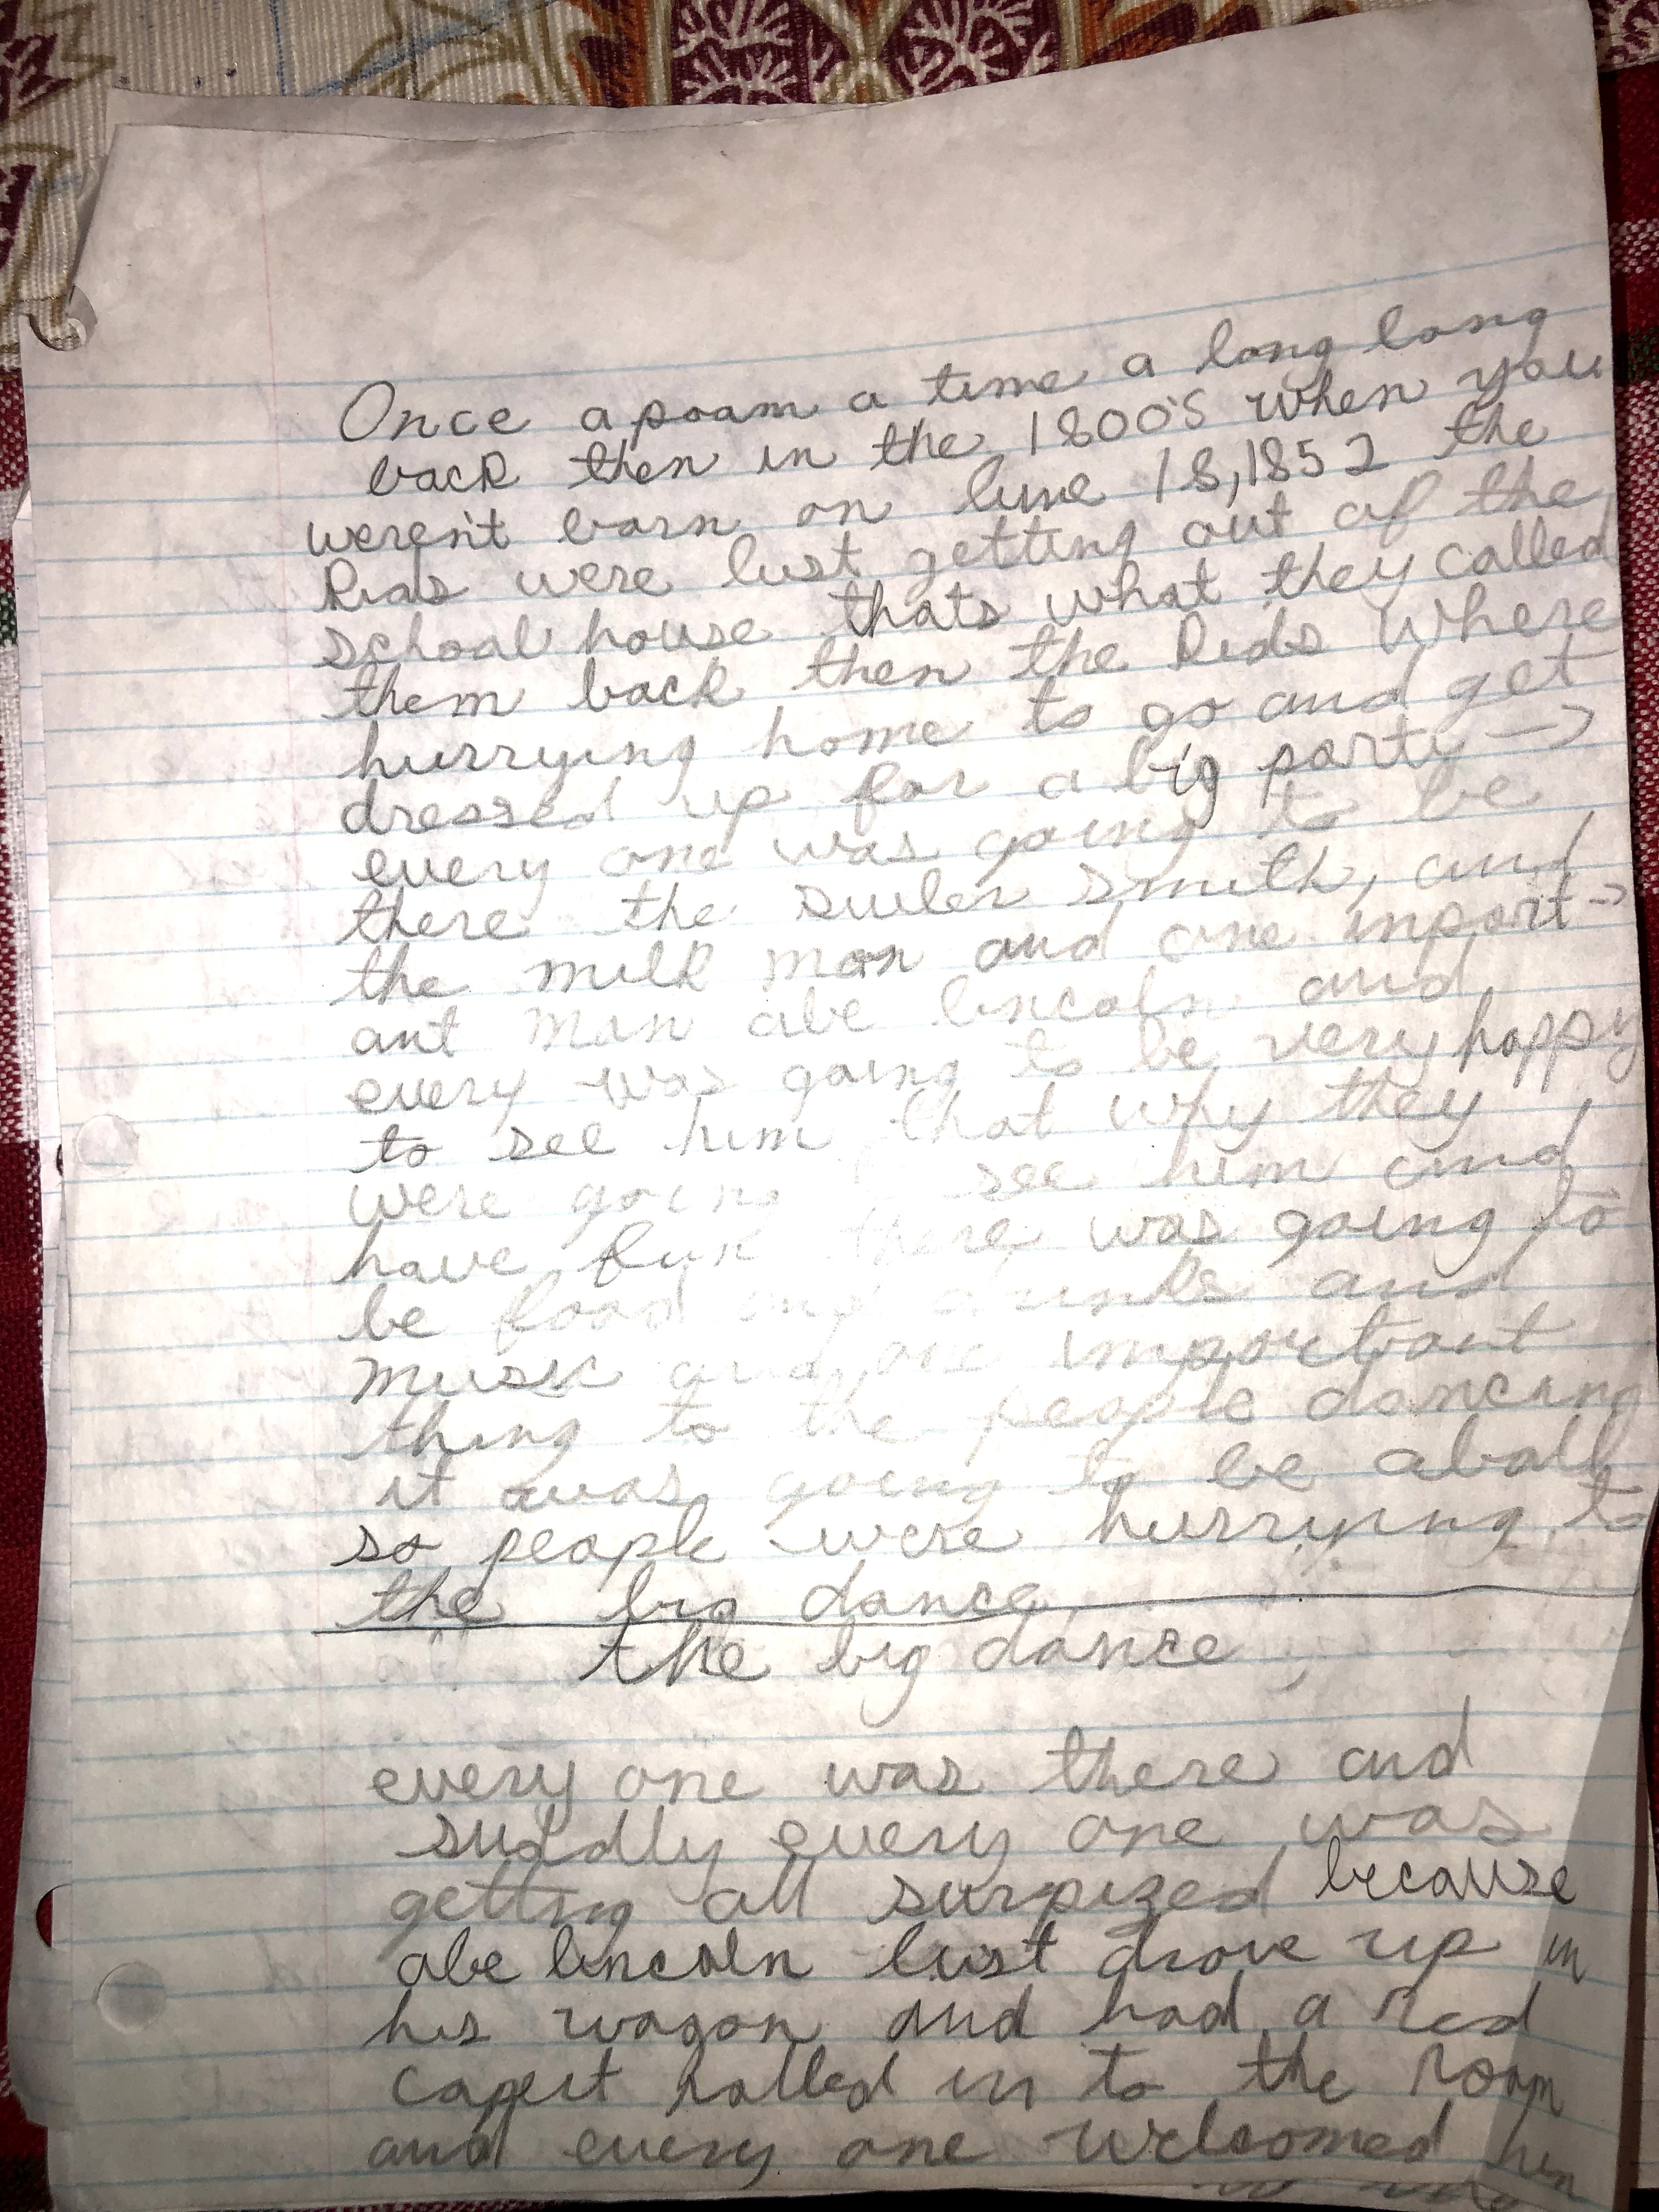 Once apoam a time a long long
back then in the 1800's when you
weren't born on June 18,1852 the
Kids were Just getting out of the
school house thats what they called
them back then the Kids where
hurrying home to go and get
dressed up for a big party →
every one was going to be
there the smith, and
the milk man and one inport→
ant man abe lincoln and
every was going to be very happy
to see him that why they
were going see him and
have fun there was going to
be food and and
music and one important
thing to the people dancing
it was going to be aball
so people were hurrying to
the big dance
the big dance
every one was there and
suddly every one was
getting all surpized because
abe lincoln Just drove up in
his wagon and had a red
capert rolled in to the room
and every one welcomed him